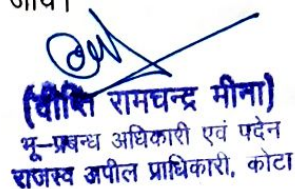 जाये।
(दीप्ति रामचन्द्र मीना)
भू-प्रबन्ध अधिकारी एवं पदेन
राजस्व अपील प्राधिकारी, कोटा